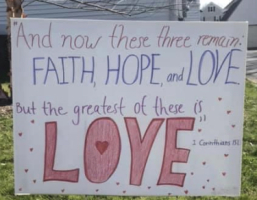 "And now these three remain:
FAITH, HOPE, and LOVE
But the greatest of these is
LOVE"
I Corinthians 13